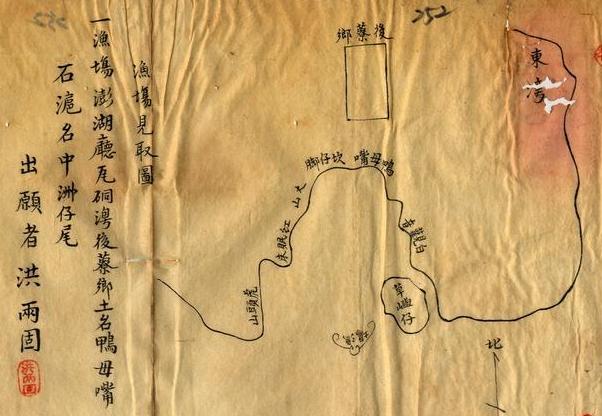 252
東灣
後蔡鄉
鴨母嘴
坎仔脚
大山
紅眠床
虎頭山
白觀音
草嶼仔
北
漁塲見取圖
一漁塲澎湖廳瓦硐澳後蔡鄉土名鴨母嘴
石滬名中洲仔尾
出願者 洪兩固
洪兩固